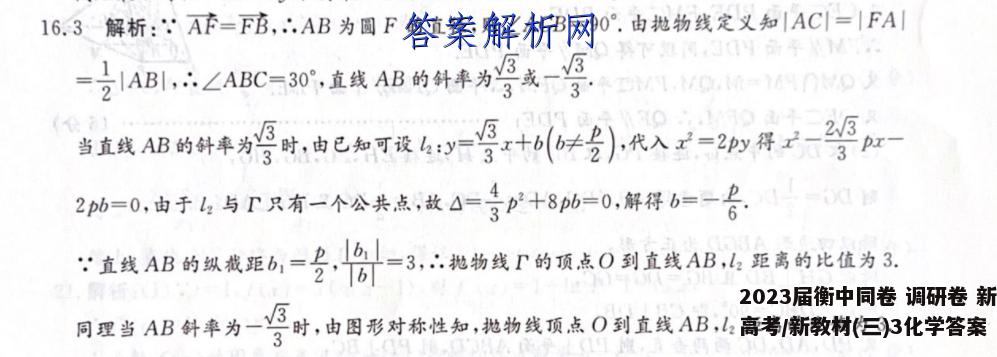 16.3 解析:∵ AF=FB,∴AB为圆F 答案解析网 90°.由抛物线定义知|AC|=|FA|
=1/2|AB|,∴∠ABC=30°,直线AB的斜率为√3/3或-√3/3.
当直线AB的斜率为√3/3时,由已知可设l₂:y=√3/3x+b(b≠p/2),代入x²=2py得x²-2√3/3px-
2pb=0,由于l₂与Γ只有一个公共点,故Δ=4/3p²+8pb=0,解得b=-p/6.
∵直线AB的纵截距b₁=p/2,|b₁|/|b|=3,∴抛物线Γ的顶点O到直线AB,l₂距离的比值为3.
同理当AB斜率为-√3/3时,由图形对称性知,抛物线顶点O到直线AB,l₂
2023届衡中同卷 调研卷 新
高考/新教材(三)3化学答案